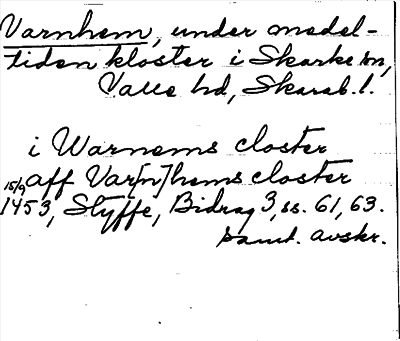 Varnhem, under medel-
tiden kloster i Skarke sn,
Valle hd, Skarab. l.
i Warnems closter
aff Var[n]hems closter
15/9 1453, Styffe, Bidrag 3, ss. 61, 63.
samt. avskr.